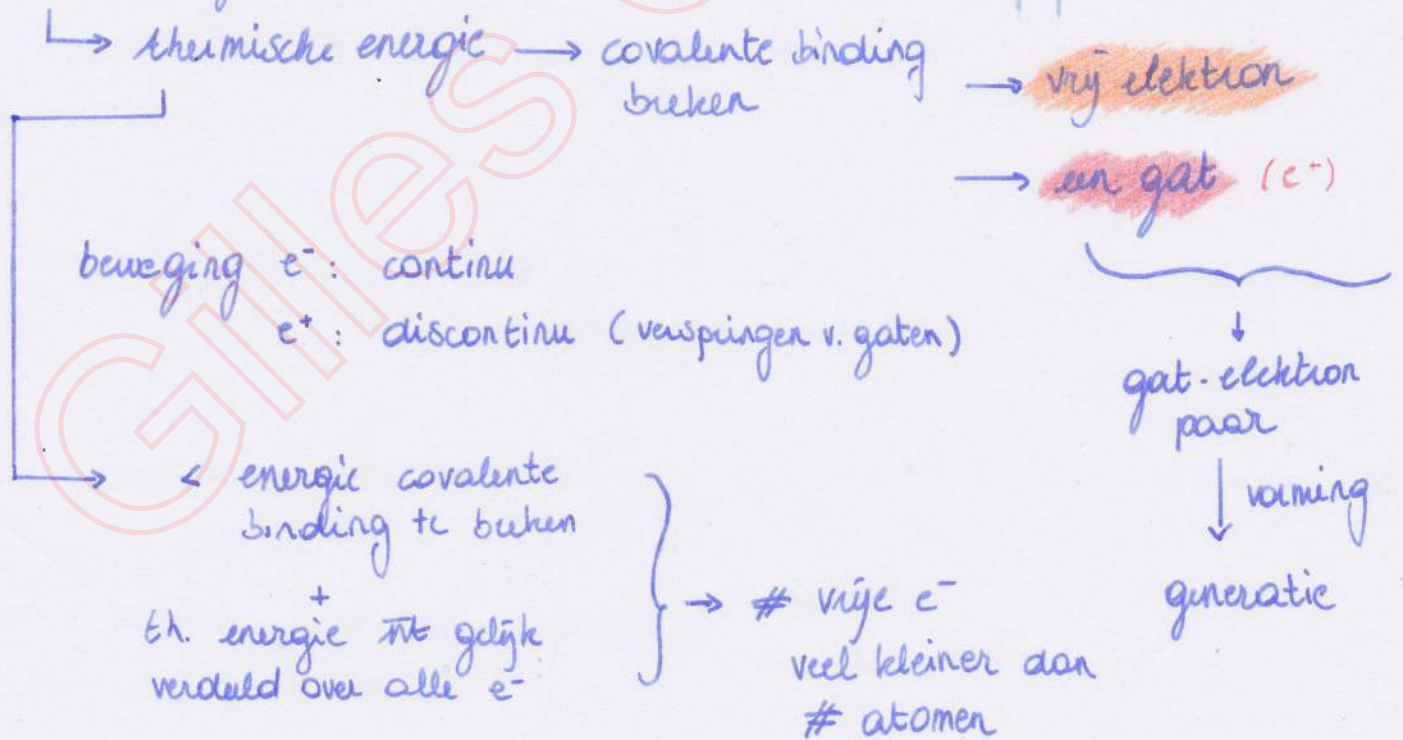 ↳ thermische energie → covalente binding breken → vrij elektron
→ een gat (e⁺)
beweging e⁻: continu
e⁺: discontinu (verspringen v. gaten)
gat-elektron
paar
↓ vorming
generatie
→ < energie covalente
binding te breken
+
th. energie nt gelijk
verdeeld over alle e⁻
→ # vrije e⁻
veel kleiner dan
# atomen
Gilles